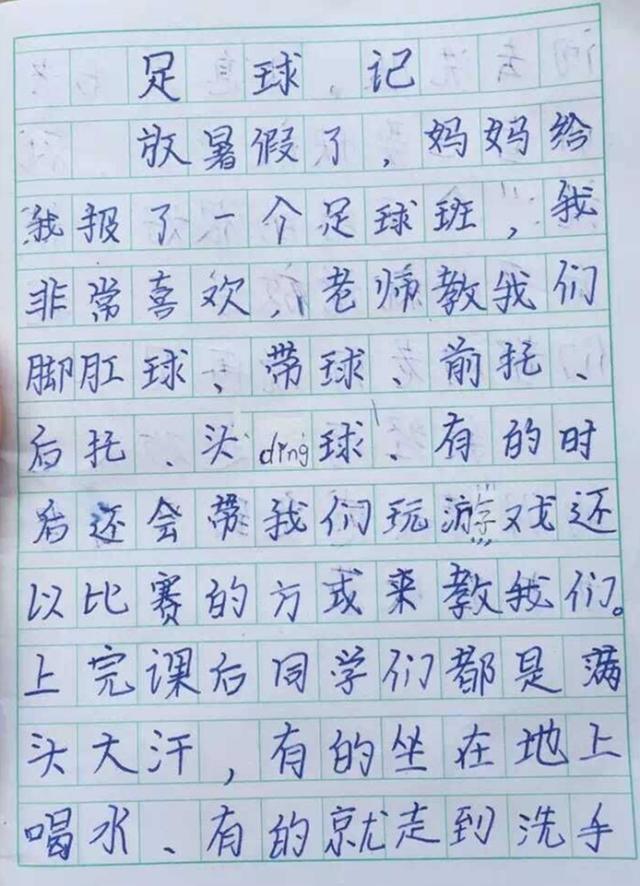 足球记
放暑假了，妈妈给
我报了一个足球班，我
非常喜欢，老师教我们
脚肛球、带球、前托、
后托、头ding球、有的时
后还会带我们玩游戏还
以比赛的方或来教我们。
上完课后同学们都是满
头大汗，有的坐在地上
喝水、有的就走到洗手